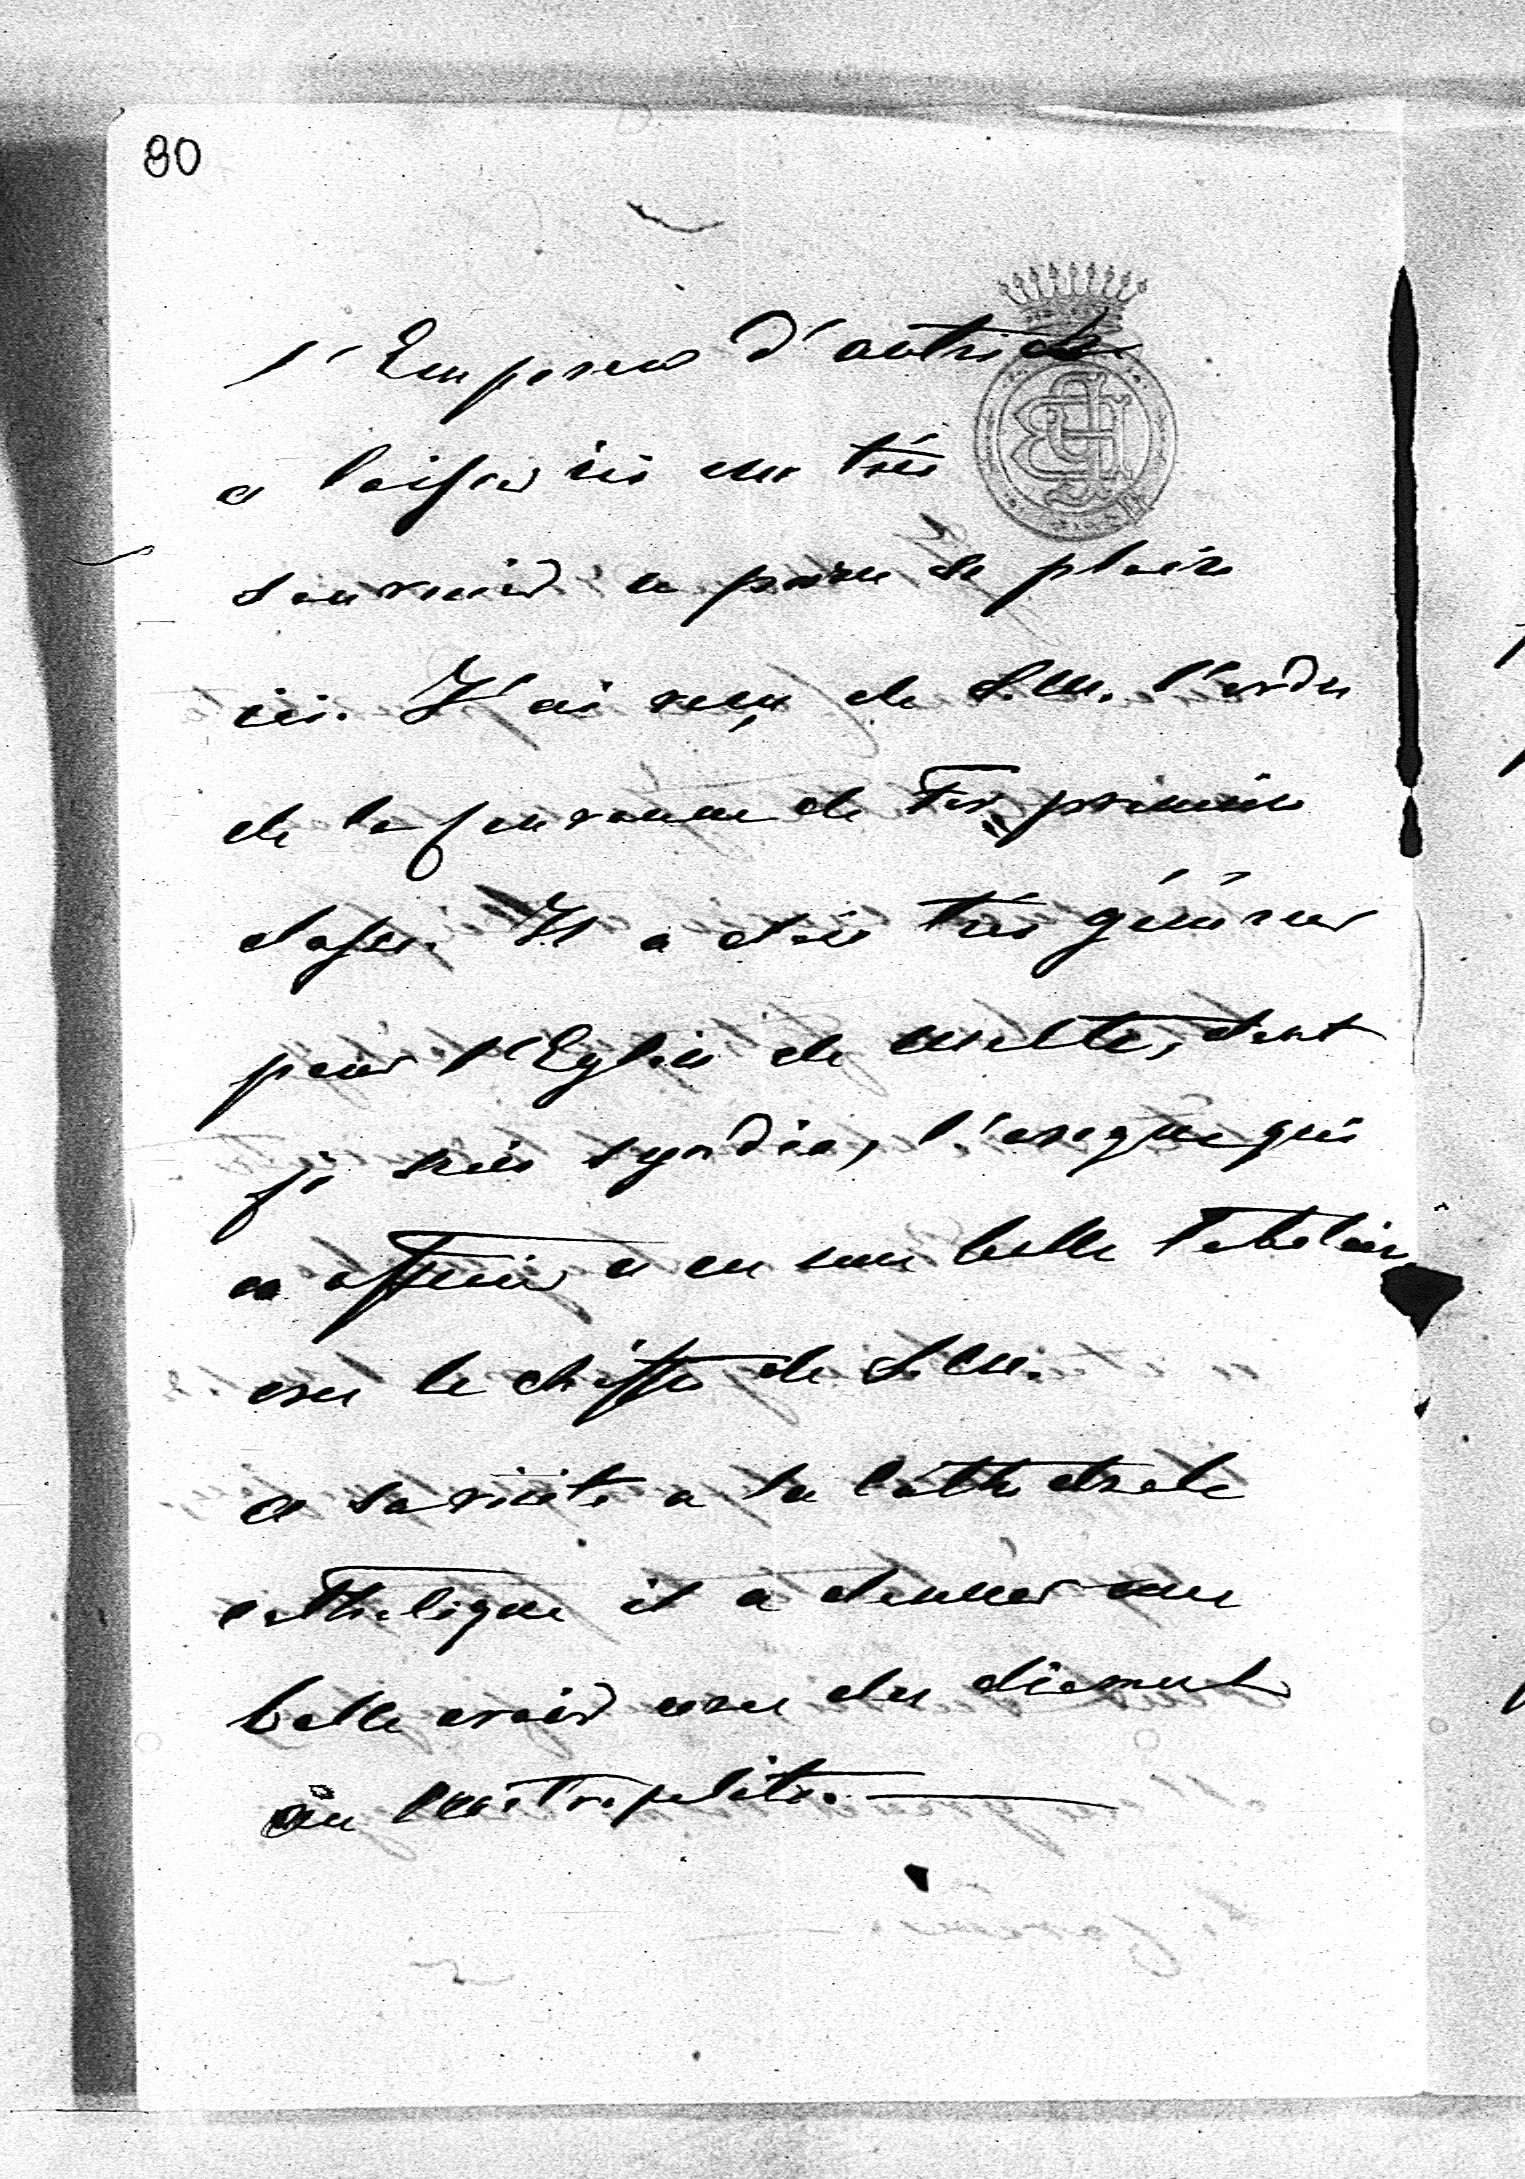 80
l'Empereur d'autriche
a laisser ici un très
souvenir a paru se plaire
ici. J'ai reçu de S.M. l'ordre
de la couronne de Fer première
classe. Il a était très généreux
pour l'Eglise de Malte, dont
je suis syndic, l'evêque qui
a officier a eu une belle Tabatière
avec le chiffre de S.M.
a sa visite a la Cathedrale
catholique il a donner une
belle croix avec des diamants
au Metropolite.